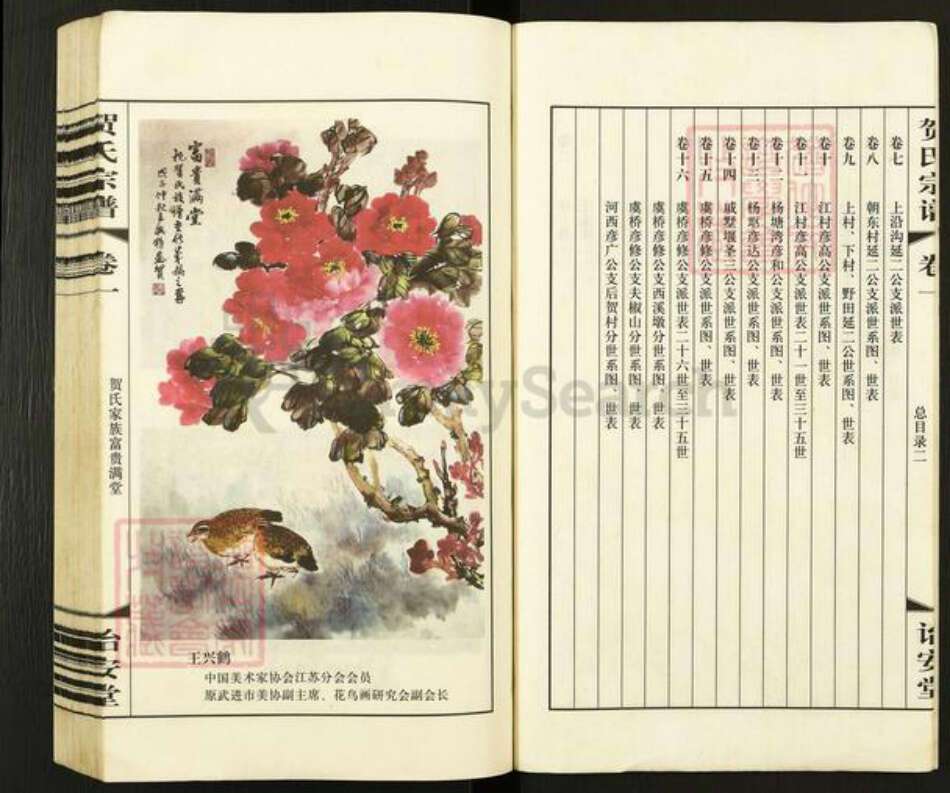 贺氏宗谱
卷一
总目录二
诒安堂
卷七 上沿沟延二公支派世表
卷八 朝东村延二公支派世系图、世表
卷九 上村、下村、野田延二公世系图、世表
卷十 江村彦高公支派世系图、世表
卷十一 江村彦高公支派世表二十一世至三十五世
卷十二 杨塘湾彦和公支派世系图、世表
卷十三 杨 彦达公支派世系图、世表
卷十四 戚墅堰圣三公支派世系图、世表
卷十五 虞桥彦修公支派世系图、世表
卷十六 虞桥彦修公支派世表二十六世至三十五世
虞桥彦修公支西溪墩分世系图、世表
虞桥彦修公支夫椒山分世系图、世表
河西彦广公支后贺村分世系图、世表
富贵满堂
祝贺氏族谱
王兴鹤
中国美术家协会江苏分会会员
原武进市美协副主席、花鸟画研究会副会长
贺氏宗谱
卷一
贺氏家族富贵满堂
诒安堂